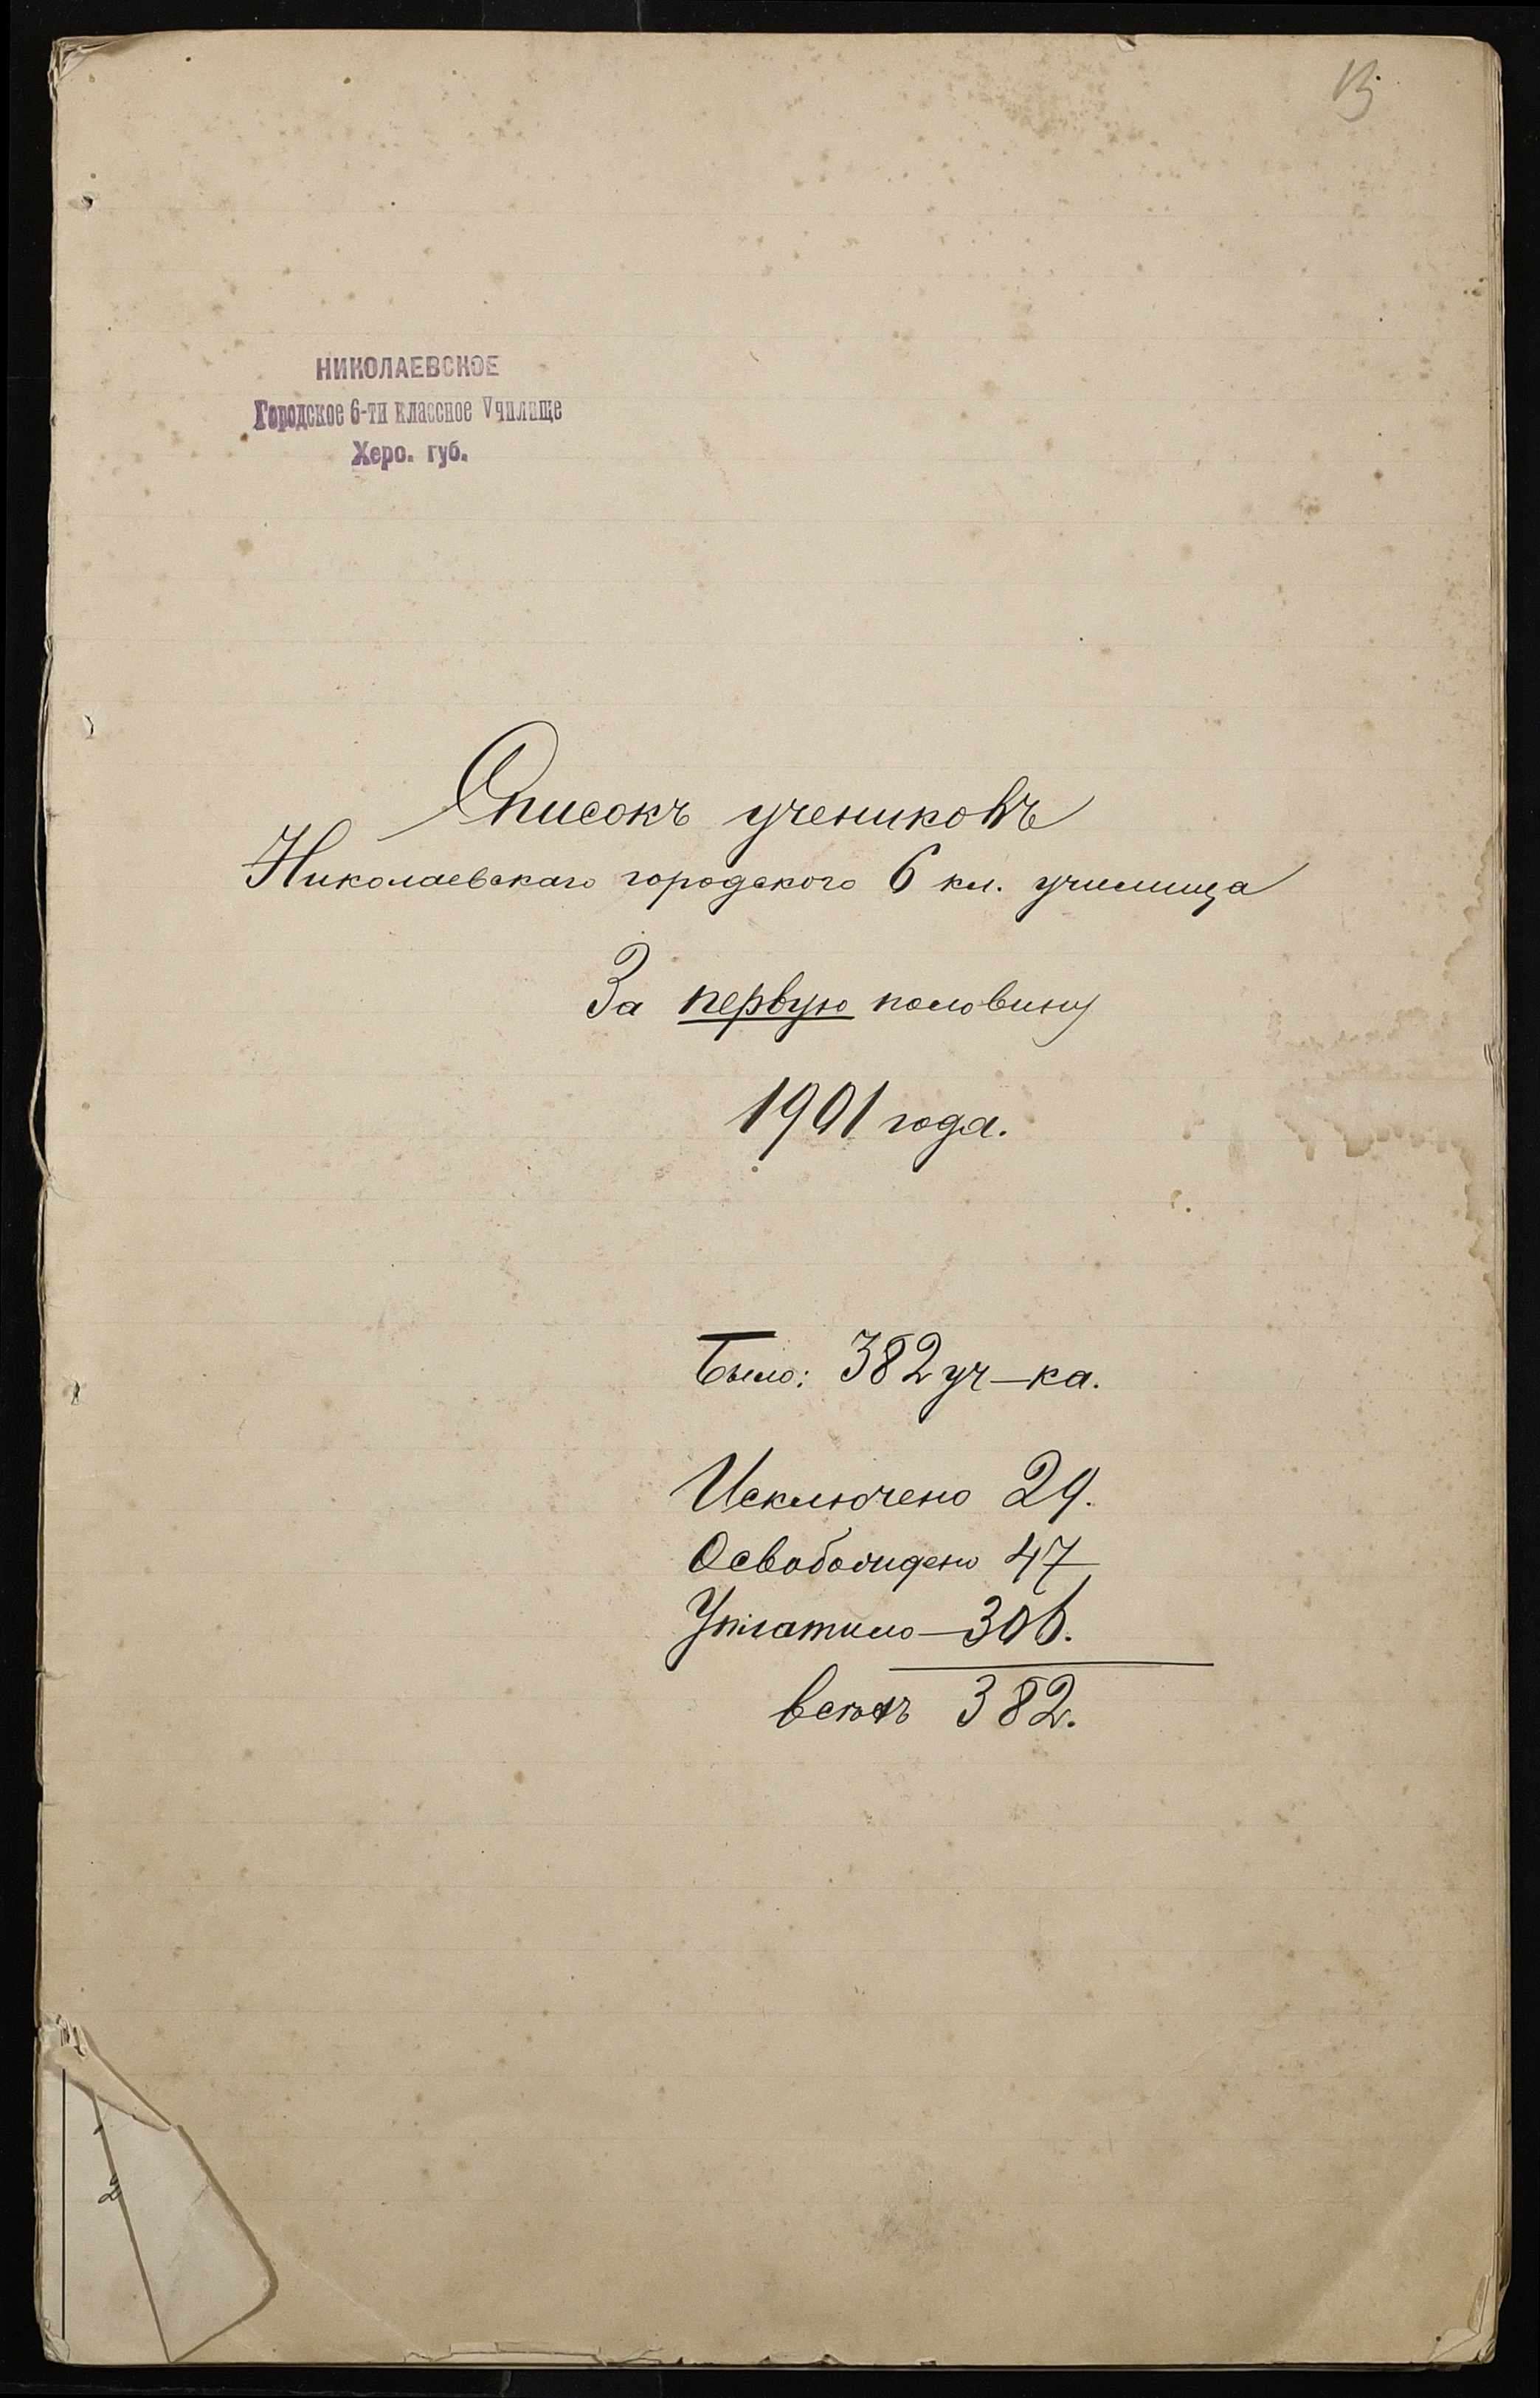 13
НИКОЛАЕВСКОЕ
Городское 6-ти классное Училище
Херс. губ.
Списокъ учениковъ
Николаевскаго городского 6 кл. училища
За первую половину
1901 года.
Было: 382 уч-ка.
Исключено 29.
Освобождено 47
Уплатило — 306.
382.
2